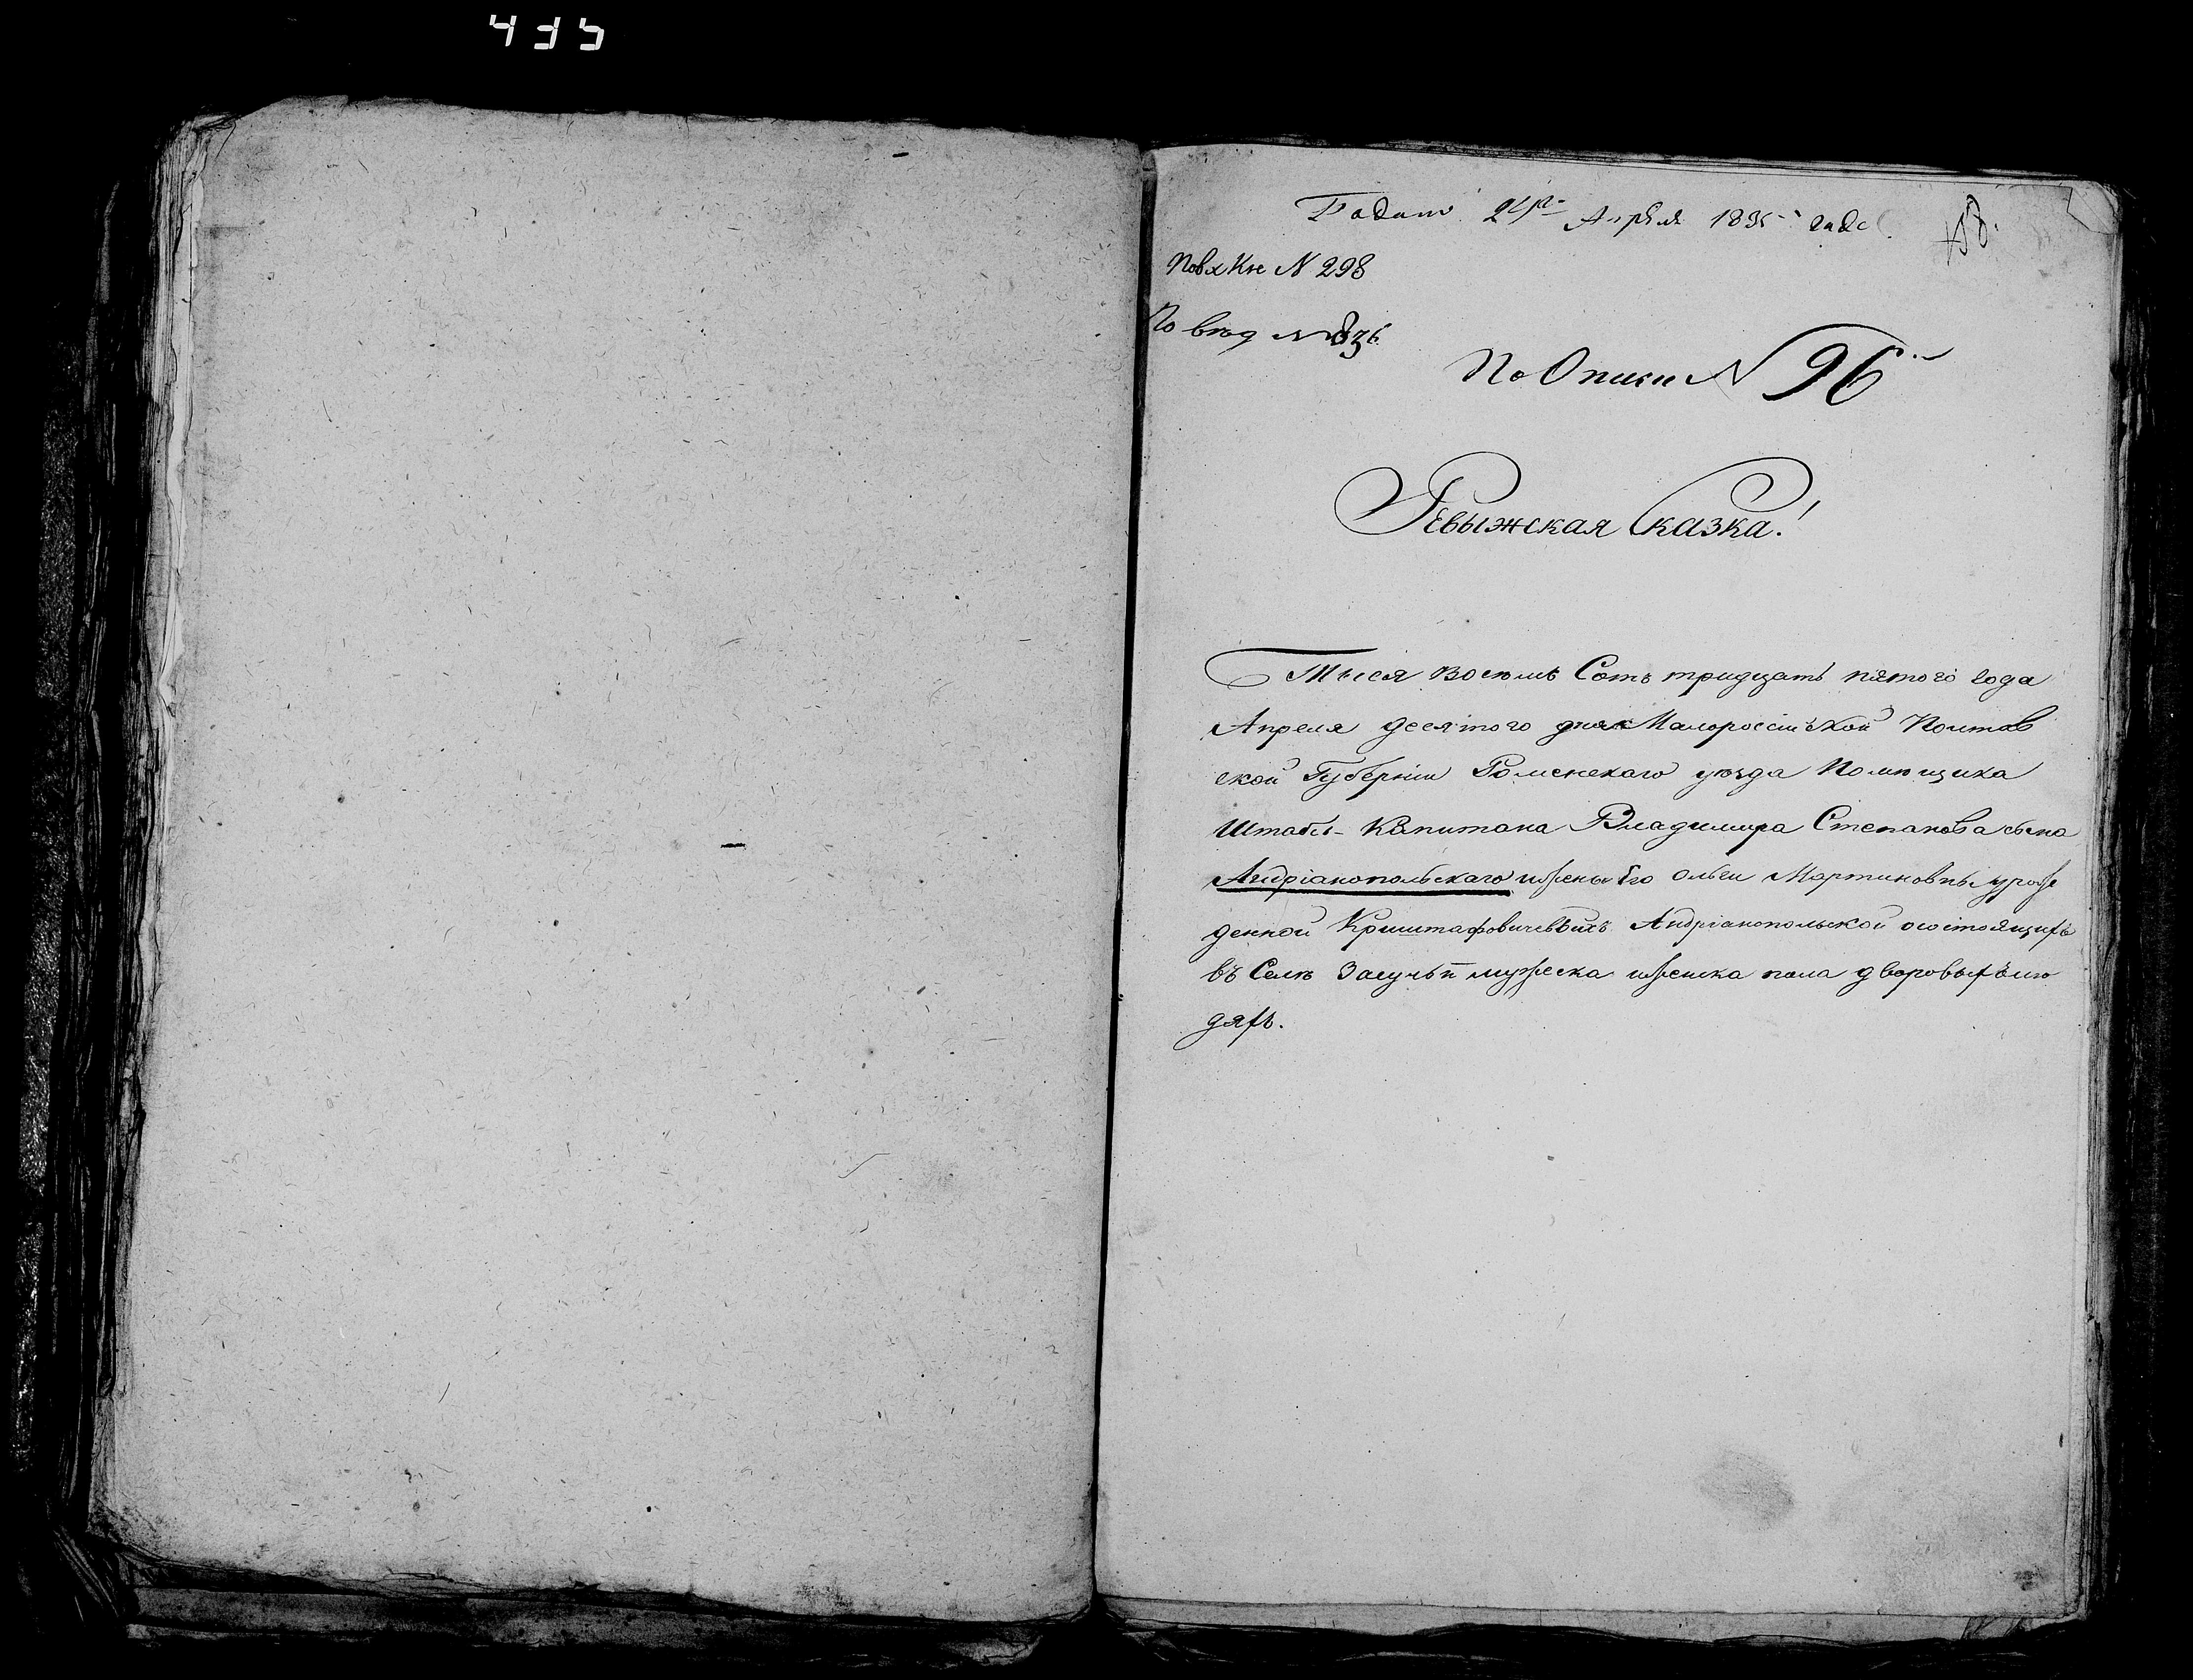 435
Подано 24го Апреля 1835 года
158.
По вх Кн N 298
По вход N 836
По Описи N 96
Ревыжская Сказка!
Тысея Восемь Сотъ тридцать пятого года
Апреля десятого дня Малороссійской Полтав
ской Губерніи Роменскаго уезда Помещика
Штабсъ-Капитана Владимира Степанова сына
Андріанопольскаго ижены Его Ольги Мартиновны урож
денной Криштафовичевыхъ Андріанопольской осостоящихъ
въ Селе Засульи мужеска иженска пола дворовыхъ лю
дяхъ.